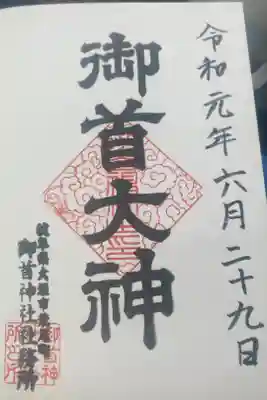 令和元年六月二十九日
御首大神
岐阜県大垣市荒尾町
御首神社社務所